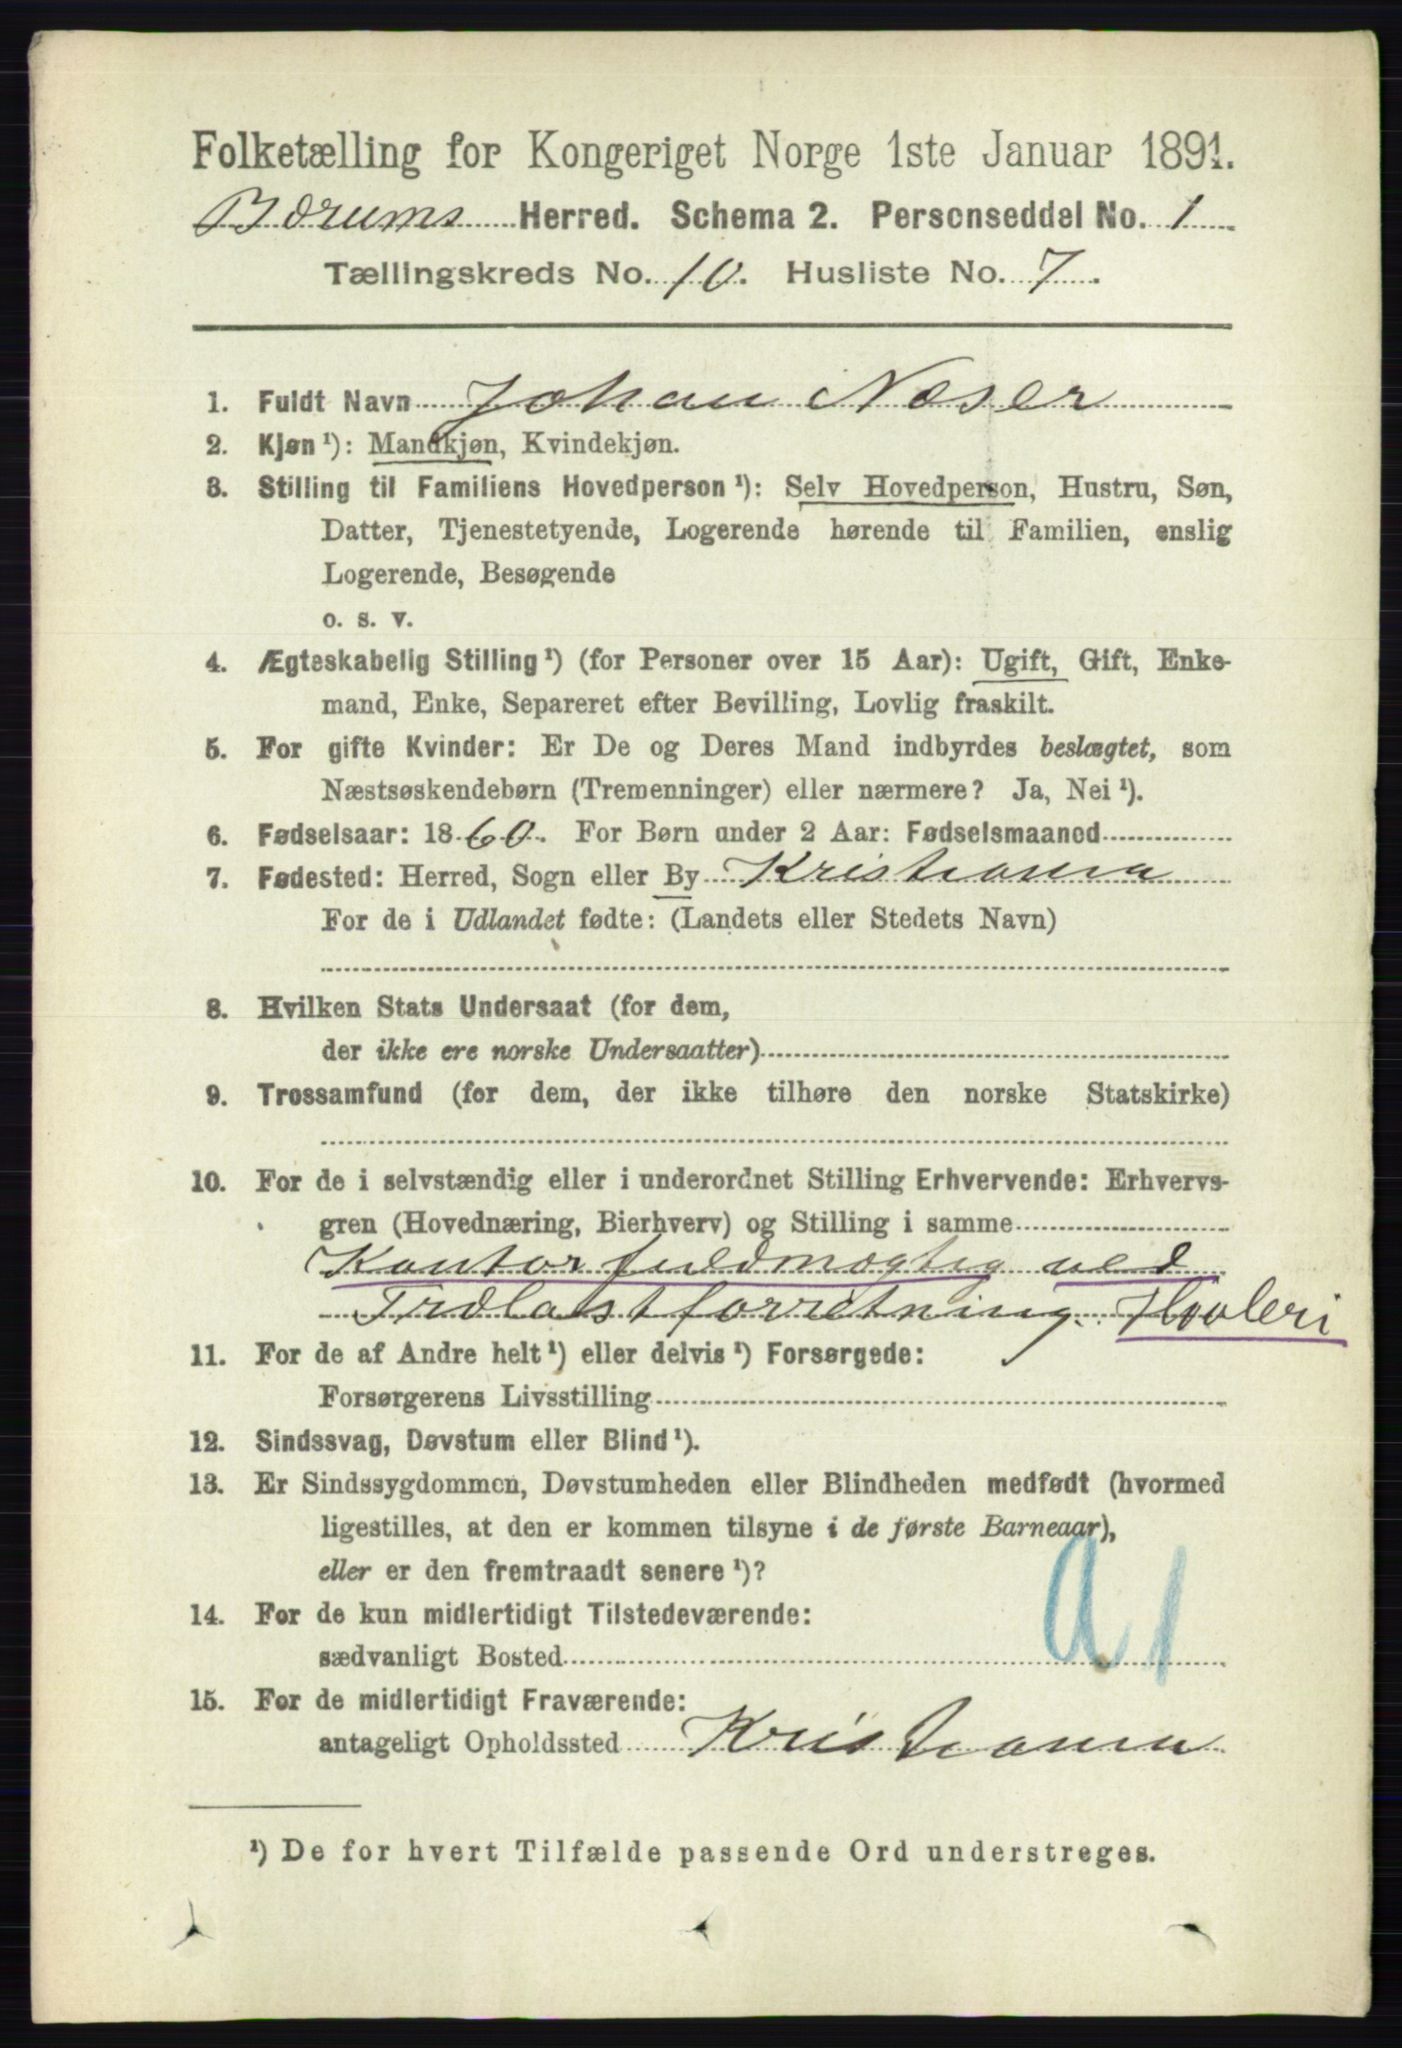 Folketælling for Kongeriget Norge 1ste Januar 1891.
Bærums Herred. Schema 2. Personseddel No. 1
Tællingskreds No. 10. Husliste No. 7.
1. Fuldt Navn Johan Næser
2. Kjøn¹): Mandkjøn, Kvindekjøn.
3. Stilling til Familiens Hovedperson¹): Selv Hovedperson, Hustru, Søn,
Datter, Tjenestetyende, Logerende hørende til Familien, enslig
Logerende, Besøgende
o. s. v.
4. Ægteskabelig Stilling¹) (for Personer over 15 Aar): Ugift, Gift, Enke-
mand, Enke, Separeret efter Bevilling, Lovlig fraskilt.
5. For gifte Kvinder: Er De og Deres Mand indbyrdes beslægtet, som
Næstsøskendebørn (Tremenninger) eller nærmere? Ja, Nei¹).
6. Fødselsaar: 1860. For Børn under 2 Aar: Fødselsmaaned
7. Fødested: Herred, Sogn eller By Kristiania
For de i Udlandet fødte: (Landets eller Stedets Navn)
8. Hvilken Stats Undersaat (for dem,
der ikke ere norske Undersaatter)
9. Trossamfund (for dem, der ikke tilhøre den norske Statskirke)
10. For de i selvstændig eller i underordnet Stilling Erhvervende: Erhvervs-
gren (Hovednæring, Bierhverv) og Stilling i samme
Kontorfuldmægtig ved
Trælastforretning. Høvleri
11. For de af Andre helt¹) eller delvis¹) Forsørgede:
Forsørgerens Livsstilling
12. Sindssvag, Døvstum eller Blind¹).
13. Er Sindssygdommen, Døvstumheden eller Blindheden medfødt (hvormed
ligestilles, at den er kommen tilsyne i de første Barneaar),
eller er den fremtraadt senere¹)?
14. For de kun midlertidigt Tilstedeværende:
sædvanligt Bosted
a 1
15. For de midlertidigt Fraværende:
antageligt Opholdssted Kristiania
¹) De for hvert Tilfælde passende Ord understreges.